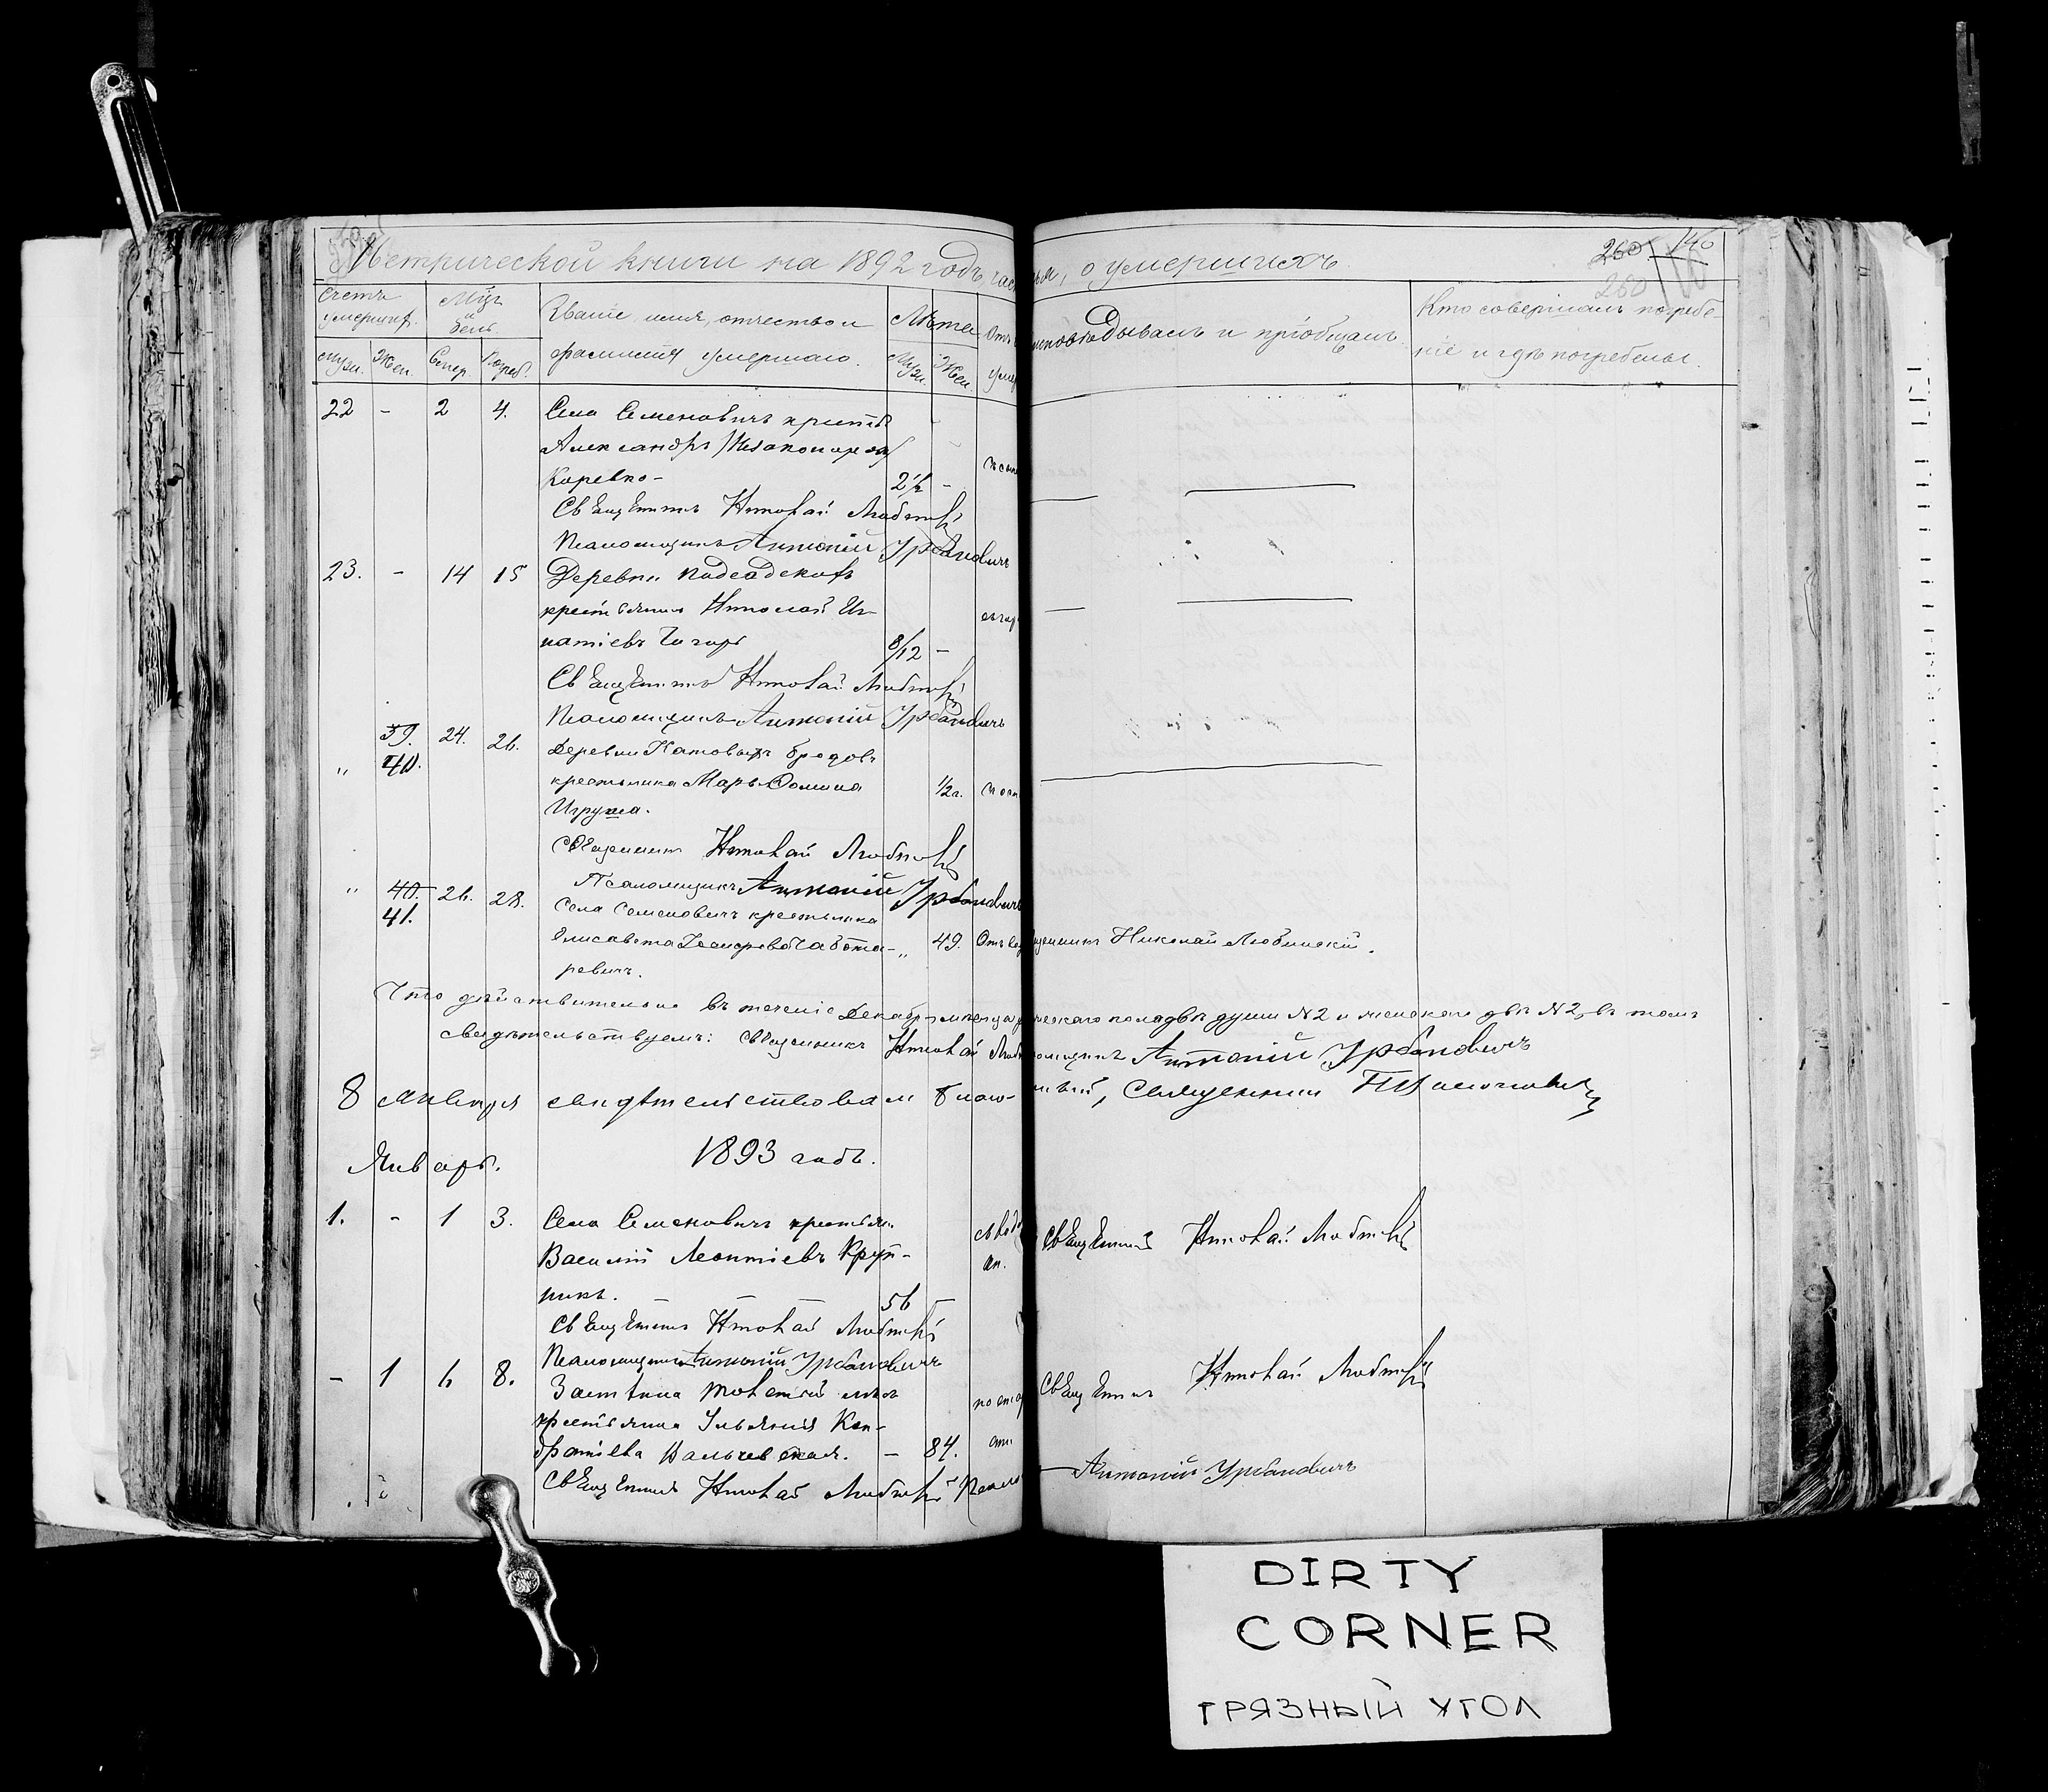 Метрической книги на 1892 годъ, час тья, о умершихъ.
260 140
260
Счетъ умершихъ. Мцъ и день. Званіе имя, отчество и фамилія умершаго. Лѣта
Муж. Жен. Смер. Погреб. Муж. Жен. Отъ умер
исповѣдывалъ и пріобщалъ.
Кто совершалъ погребе-
ніе и гдѣ погребены.
22 - 2 4. Села Семеновичъ крестьян
Александръ /Незаконорож/
Каревко - 2½ -
Священникъ Николай Любинскій
Псаломщикъ Антоній Урбановичъ
23. - 14 15 Деревни
крестьянинъ Николай Иг-
натіевъ 8/12 -
Священникъ Николай Любинскій
Псаломщикъ Антоній Урбановичъ
39. 24. 26. Деревни бродовъ
" 40. крестьянка 1/2 г.
Священникъ Николай Любинскій
Псаломщикъ Антоній Урбановичъ
" 40. 26. 28. Села Семеновичъ крестьянка
41. Елисавета - " 49. Отъ Священникъ Николай Любинскій.
ревичъ.
Что дѣйствительно въ теченіе Декабря мѣсяца мужескаго пола двѣ души №2 и женскаго двѣ №2, въ томъ
свидѣтельствуемъ: Священникъ Николай Люб Псаломщикъ Антоній Урбановичъ
8 Января свидѣтельствовалъ Благо- чинный, Священникъ
Январь. 1893 годъ.
1. - 1 3. Села Семеновичъ крестьян.
Василій Леонтіевъ Круп-
никъ. - - - 56 -
Священникъ Николай Любинскій
Священникъ Николай Любинскій
Псаломщикъ Антоній Урбановичъ
- 1 6 8. Застѣнка
крестьянка Ульянія Кон-
дратіева - 84.
Священникъ Николай Любинскій
Священникъ Николай Любинскій Псало Антоній Урбановичъ
DIRTY
CORNER
ГРЯЗНЫЙ УГОЛ